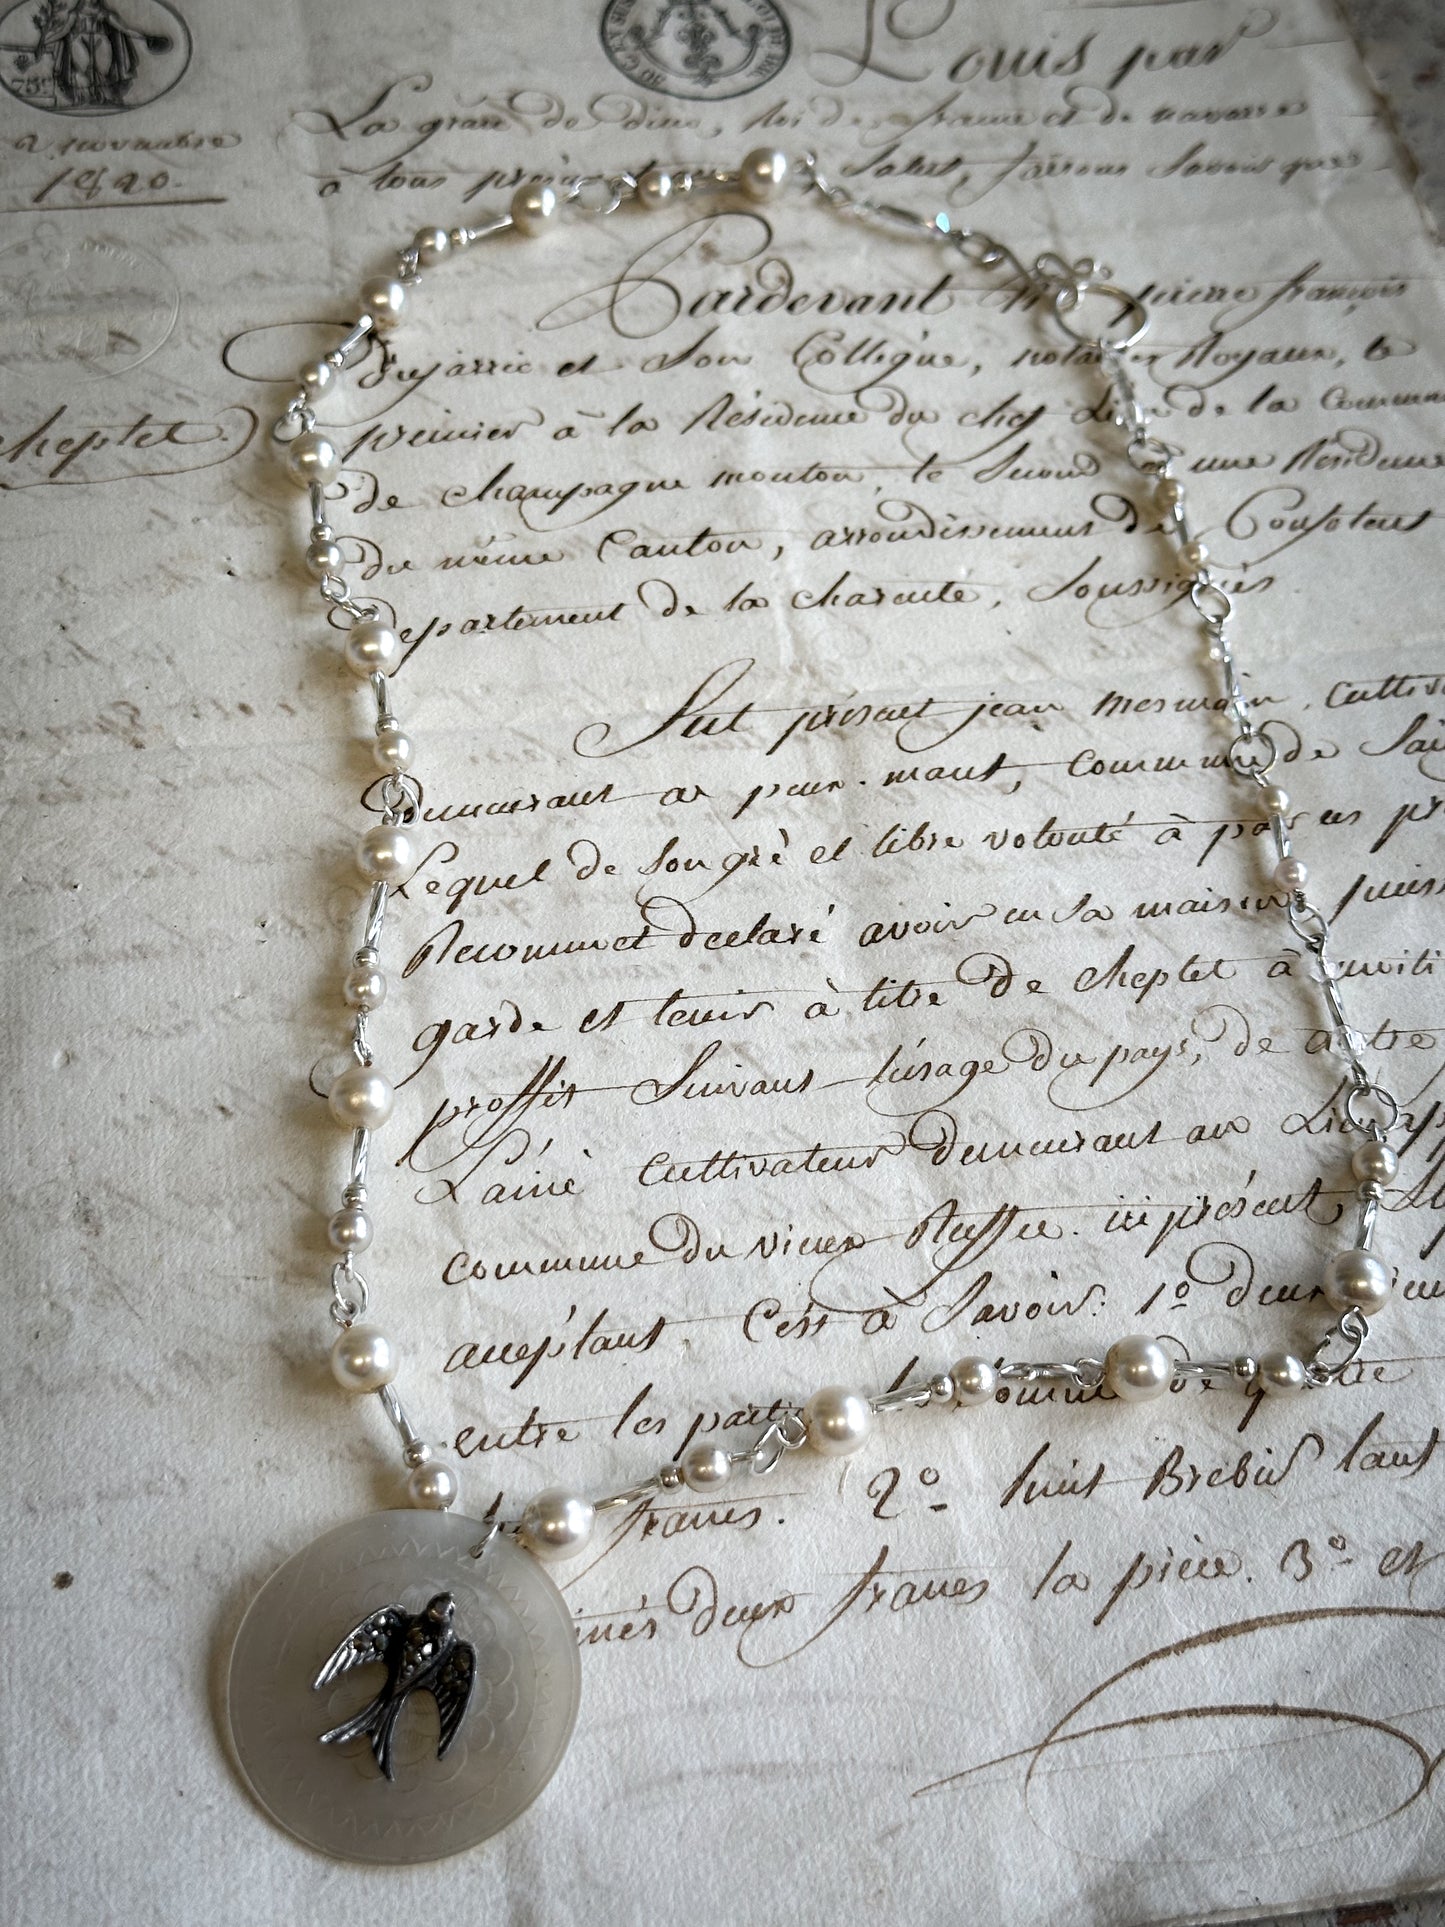 75c
2 novembre
1820.
cheptel.
Louis par
La grace de dieu, Roi de france et de navarre
à tous présents, Salut, faisons Savoir que
Pardevant pierre françois
Dujarric et Son Collègue, notaires Royaux, le
premier à la Résidence du chef Lieu de la Commun
de champagne mouton, le Second a une Résidence
du même Canton, arrondissement de Confolens
Departement de la charente, Soussignés
fut présent jean Mesmain, Cultiv
demeurant a peux-maut, commune de Sai
Lequel de Son gré et libre volonté à pa
Reconnu et declaré avoir en Sa maison, puiss
garde et tenir à titre de cheptel à moiti
proffit Suivant l'usage du pays, de
L'ainé Cultivateur demeurant au
commune du vieux Ruffec. ici présent,
acceptant, C'est à Savoir: 1º deux
entre les parties la Somme de
francs. 2º huit Brebis tant
deux francs la pièce. 3º et